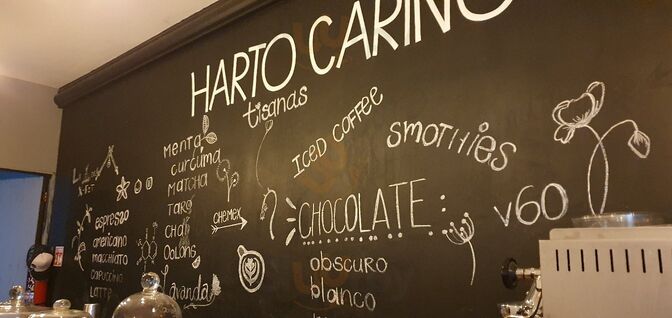 HARTO CARIÑO
tisanas
ICED COFFEE
SMOTHiES
menta
curcuma
MATCHA
TARO
CHAI
OOLONG
Lavanda
CHEMEX
espresso
americano
macchiato
capuccino
LATTE
CHOCOLATE:
obscuro
blanco
V60